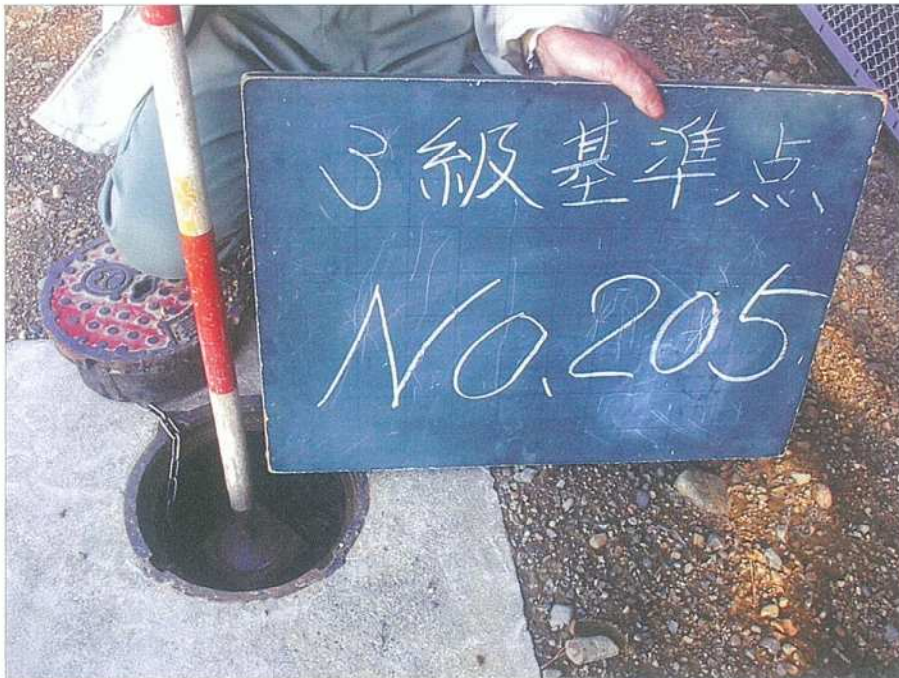 3級基準点
NO.205